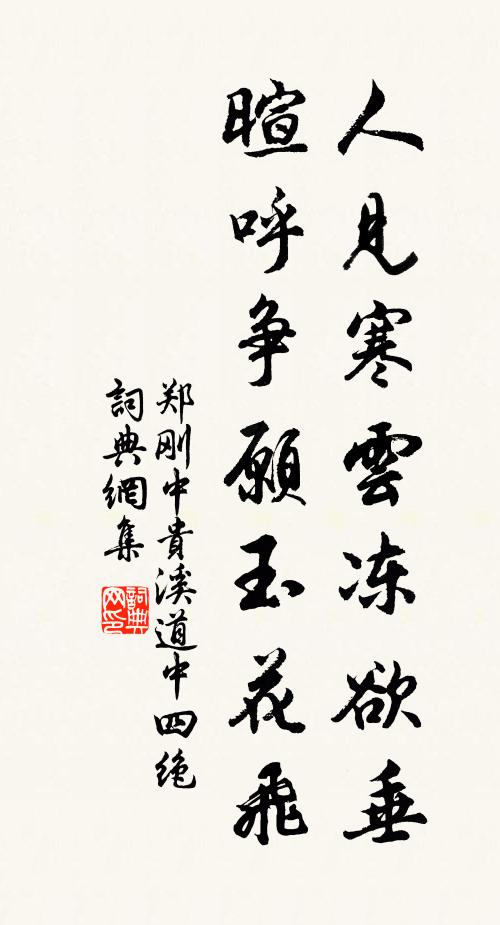 人見寒雲冻欲垂
暄呼争願玉花飛
郑刚中貴溪道中四绝
詞典網集
詞典
网印